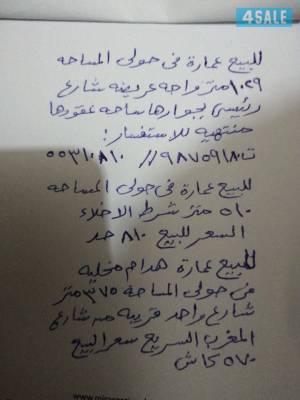 4SALE
للبيع عمارة فى حولى المساحه
١٠٢٩ متر واجه عريضه شارع
رئيسى بجوارها ساحه عقودها
منتهيه للاستفسار!
ت ٩٨٧٥٩١٨٠ // ٥٥٣١٠٨١٠
للبيع عمارة فى حولى المساحه
٥١٠ متر شرط الاخلاء
السعر للبيع ٨١٠ حد
للبيع عمارة هدام مخليه
فى حولى المساحه ٣٧٥ متر
شارع واحد قريبه من شارع
المغرب السريع سعر البيع
٥٧٠ كاش